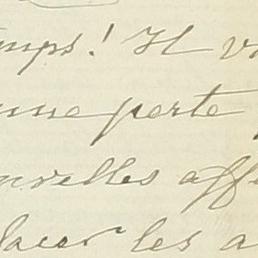 mps! Il v
une perte
uvelles aff
lacer les a